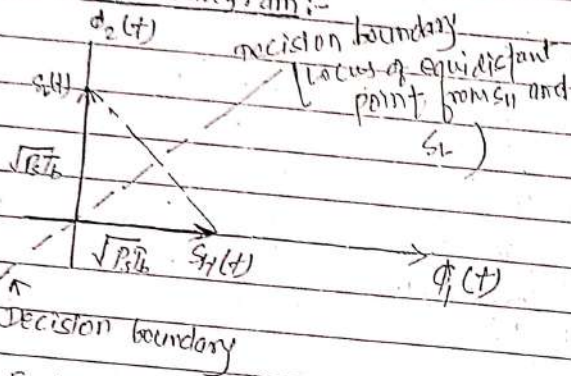 gram:-
φ₂(t)
Decision boundary
(Locus of equidistant
point from S_H and
S_L)
S_L(t)
√P_sT_b
√P_sT_b S_H(t)
φ₁(t)
Decision boundary